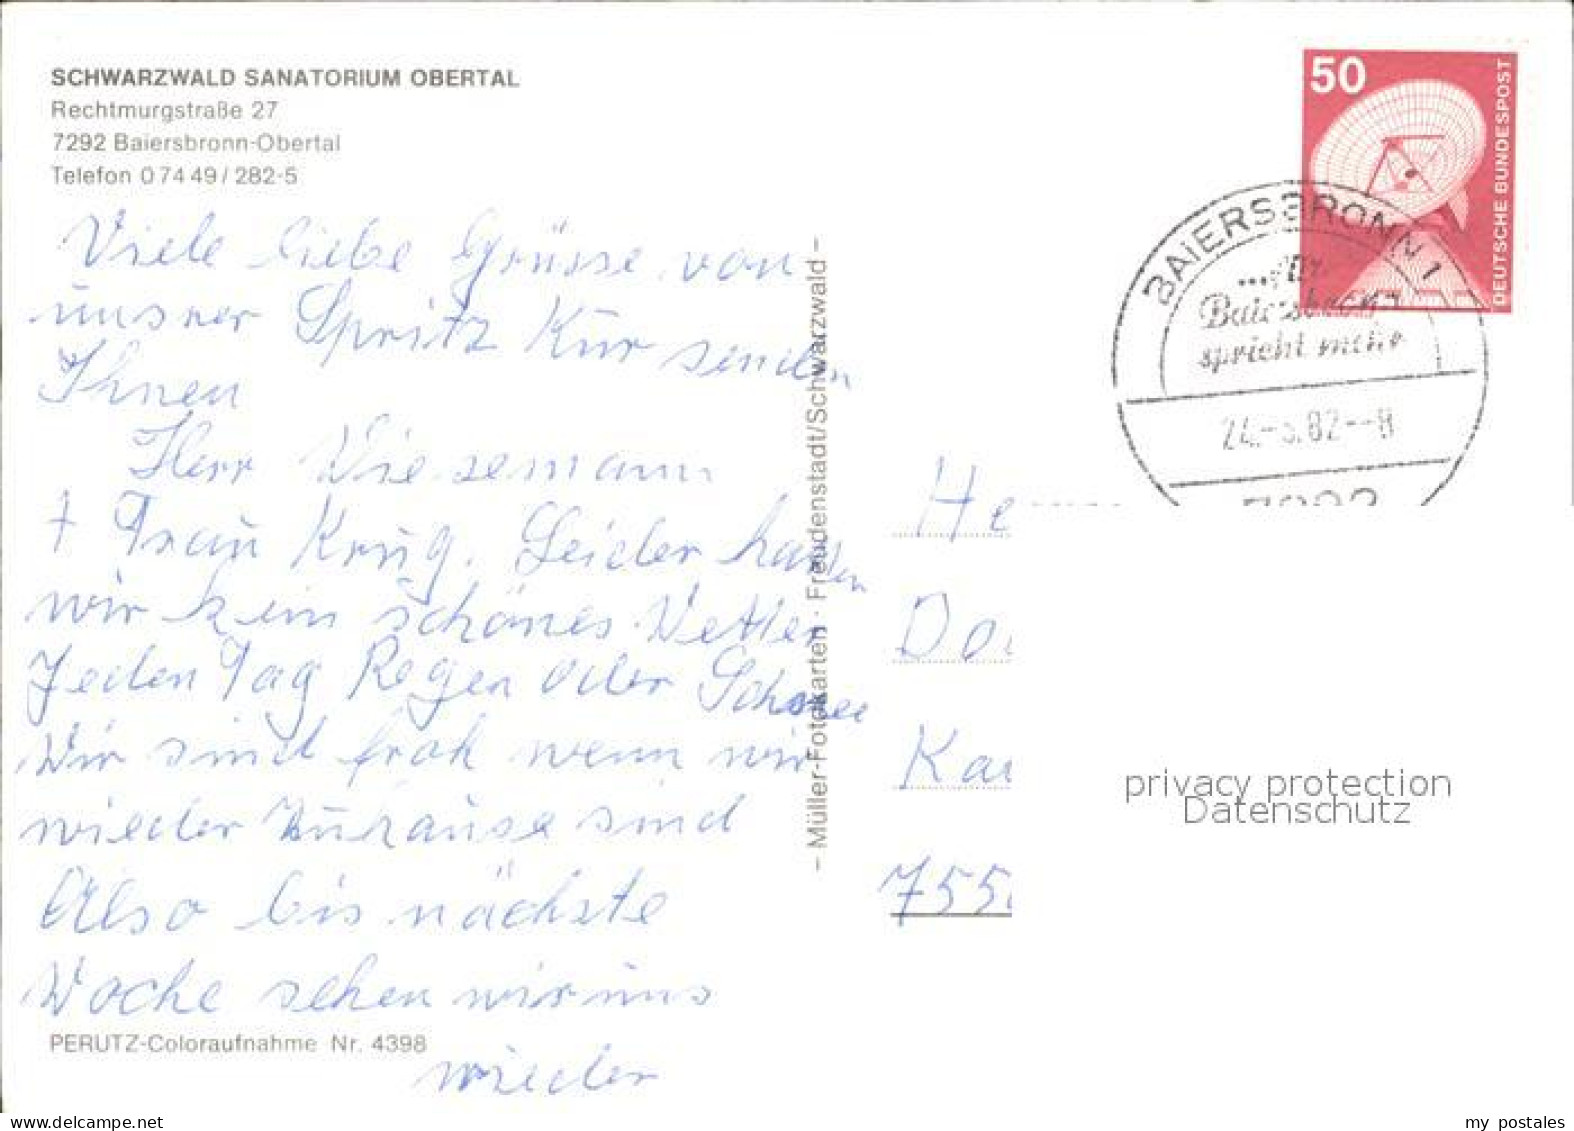 SCHWARZWALD SANATORIUM OBERTAL
Rechtmurgstraße 27
7292 Baiersbronn-Obertal
Telefon 0 74 49 / 282-5
Viele liebe Grüsse von
unsrer Spritz Kur senden
Ihnen
Herr Wiesemann
+ Frau Krug. Leider haben
wir kein schönes Wetter
Jeden Tag Regen oder Schnee
Wir sind froh wenn wir
wieder Zuhause sind
Also bis nächste
Woche sehen wir uns
wieder
PERUTZ-Coloraufnahme Nr. 4398
– Müller-Fotokarten · Freudenstadt/Schwarzwald –
50
DEUTSCHE BUNDESPOST
BAIERSBRONN 1
...für
Baiersbronn
spricht mehr
24.-3.82--8
7292
He
Do
Ka
755
privacy protection
Datenschutz
www.delcampe.net
my_postales